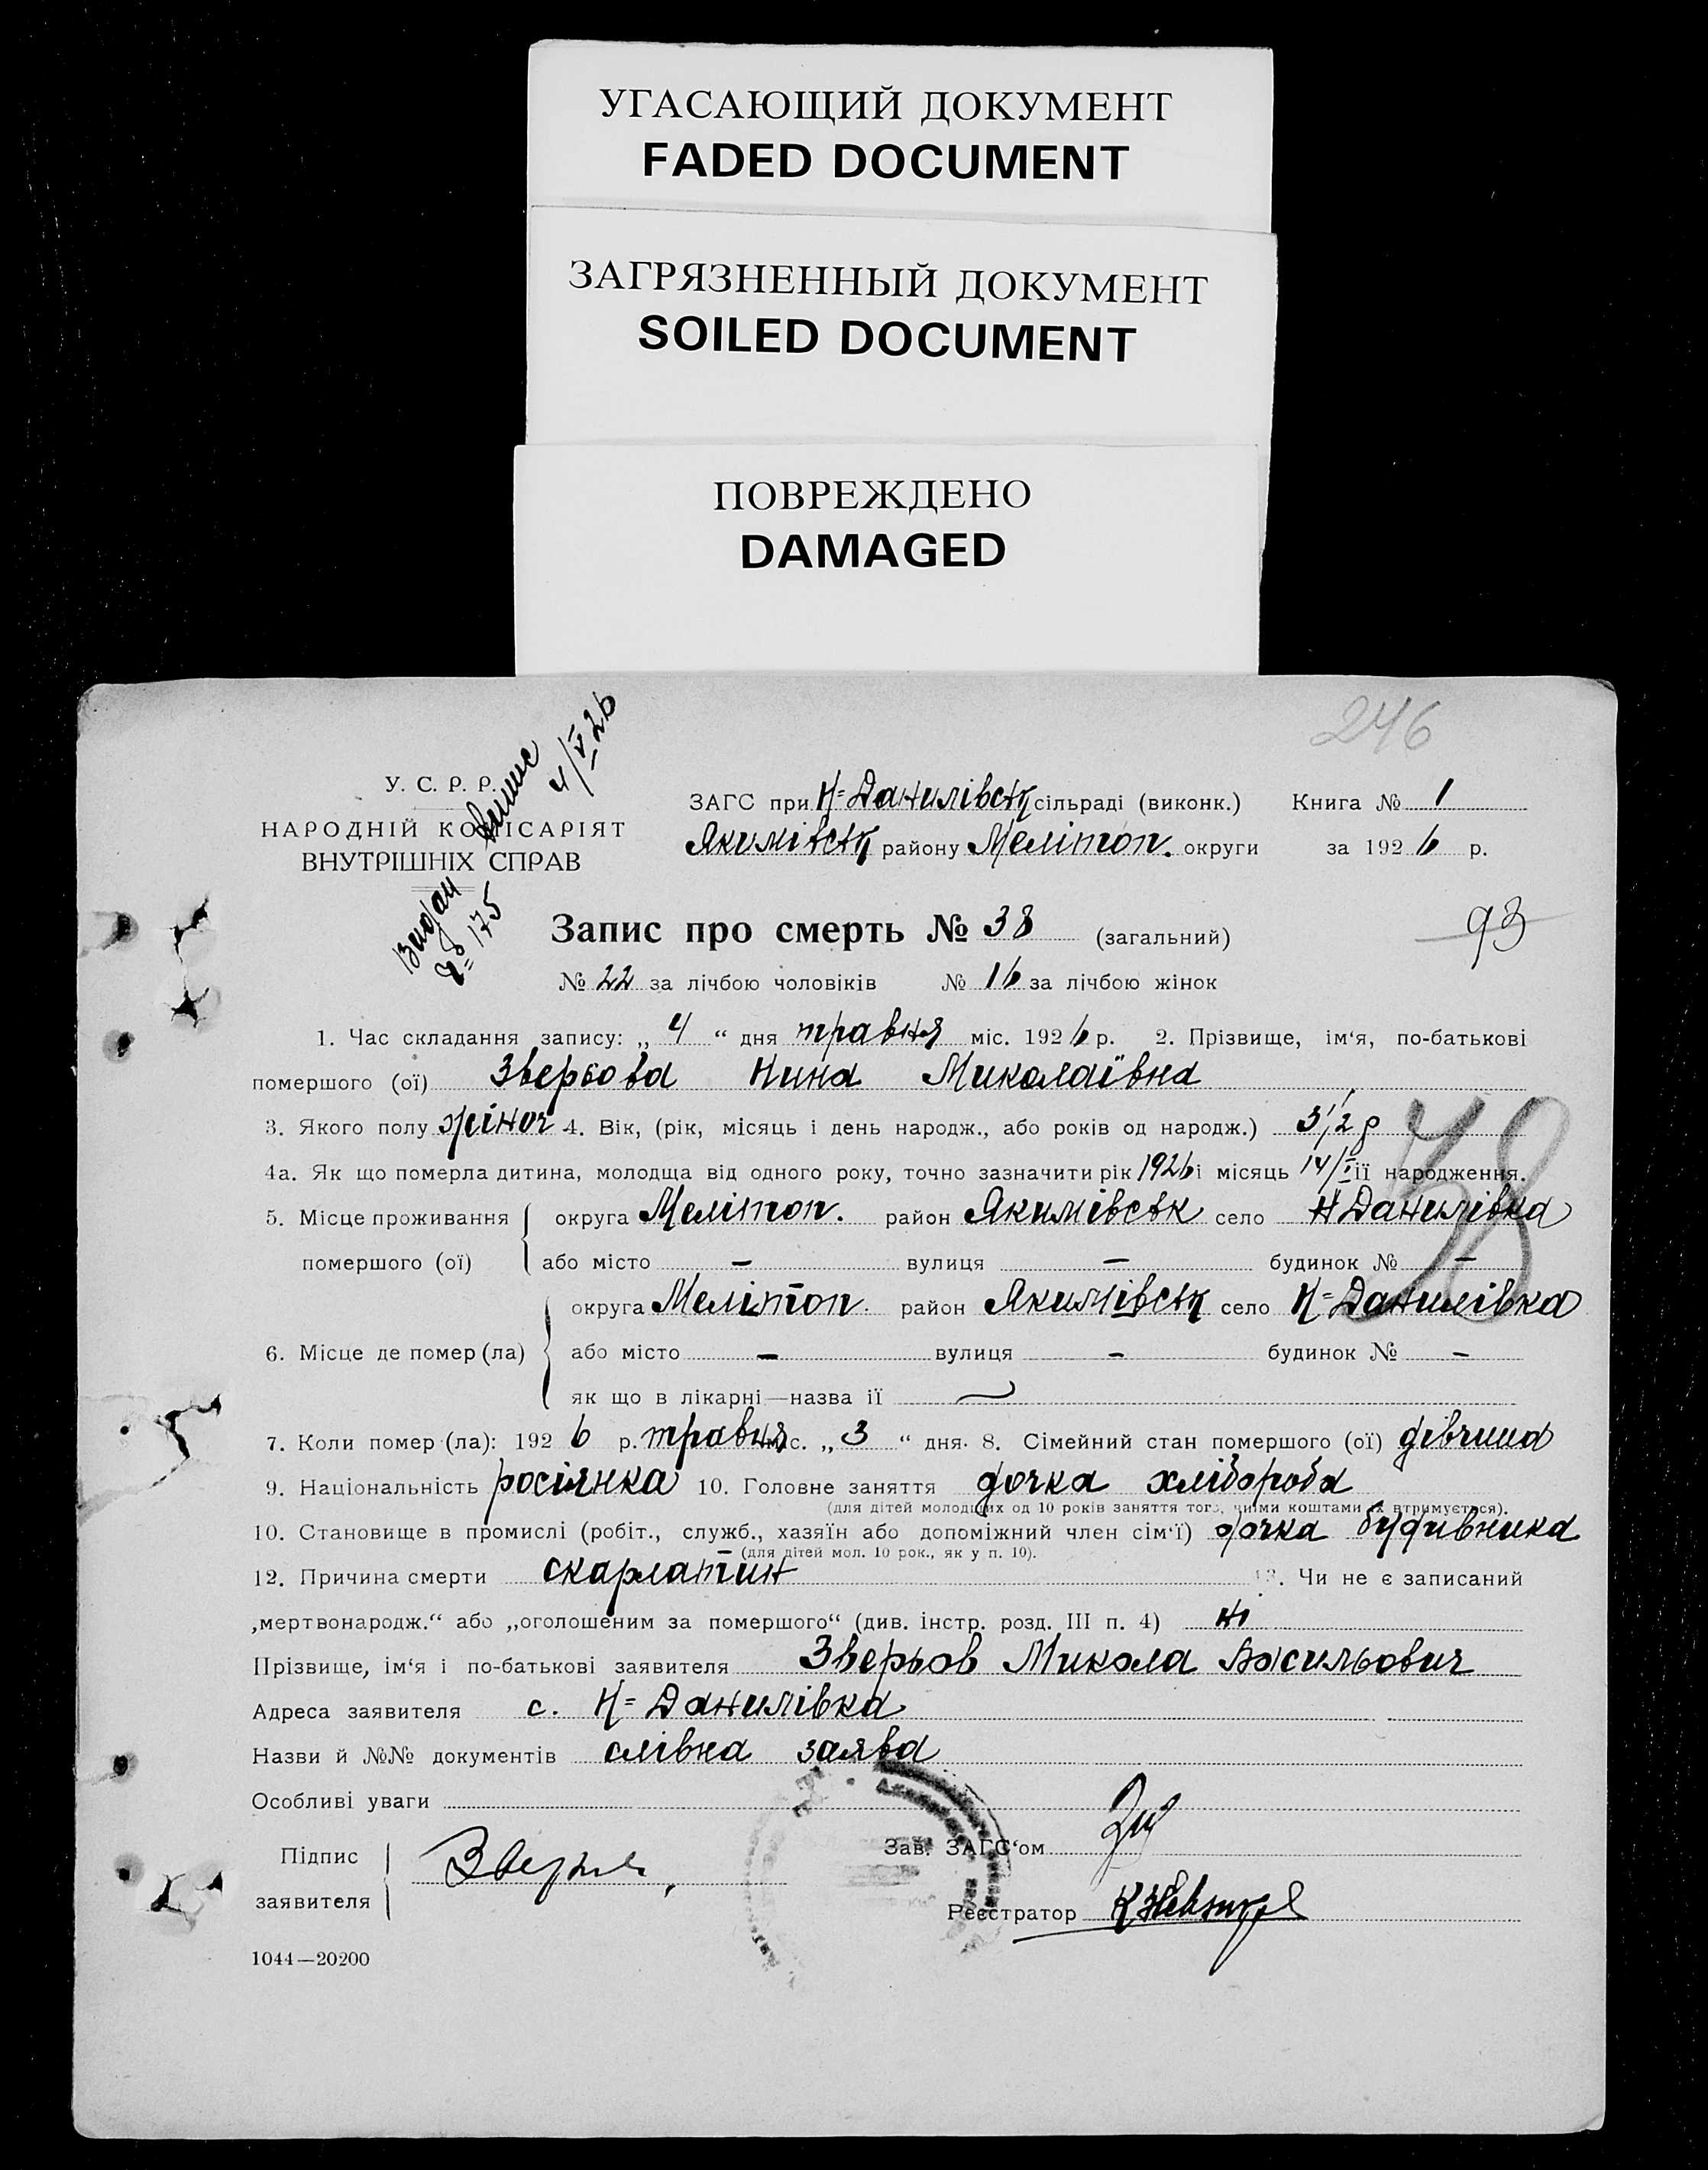 УГАСАЮЩИЙ ДОКУМЕНТ
FADED DOCUMENT
ЗАГРЯЗНЕННЫЙ ДОКУМЕНТ
SOILED DOCUMENT
ПОВРЕЖДЕНО
DAMAGED
246
У. С. Р. Р.
НАРОДНІЙ КОМІСАРІЯТ
ВНУТРІШНІХ СПРАВ
Видан
4/V 26
№ 175
ЗАГС при Н=Данилівськ сільраді (виконк.) Книга № 1
Якимівськ району Меліт​оп. округи за 1926 р.
Запис про смерть № 38 (загальний)
93
№ 22 за лічбою чоловіків № 16 за лічбою жінок
1. Час складання запису: „ 4 “ дня травня міс. 1926 р. 2. Прізвище, ім‘я, по-батькові
помершого (ої) Зверьова Нина Миколаївна
3. Якого полу жіноч 4. Вік, (рік, місяць і день народж., або років од народж.) 3 1/2 р
4а. Як що померла дитина, молодща від одного року, точно зазначити рік 1926 і місяць 14/I її народження.
38
5. Місце проживання округа Мелітоп. район Якимівськ село Н Данилівка
помершого (ої) або місто – вулиця – будинок № –
округа Мелітоп. район Якимівськ село Н=Данилівка
6. Місце де помер (ла) або місто – вулиця – будинок № –
як що в лікарні—назва її
7. Коли помер (ла): 1926 р. травня міс. „ 3 “ дня. 8. Сімейний стан помершого (ої) дівчина
9. Національність росіянка 10. Головне заняття дочка хлібороба
(для дітей молодших од 10 років заняття того, чиїми коштами їх втримується).
10. Становище в промислі (робіт., служб., хазяїн або допоміжний член сім‘ї) дочка будівника
(для дітей мол. 10 рок., як у п. 10).
12. Причина смерти скарлатин 13. Чи не є записаний
„мертвонародж.“ або „оголошеним за помершого“ (див. інстр. розд. III п. 4) ні
Прізвище, ім‘я і по-батькові заявителя Зверьов Микола Васильович
Адреса заявителя с. Н=Данилівка
Назви й №№ документів слівна заява
Особливі уваги
Підпис Зав. ЗАГС‘ом
заявителя Реєстратор
1044—20200